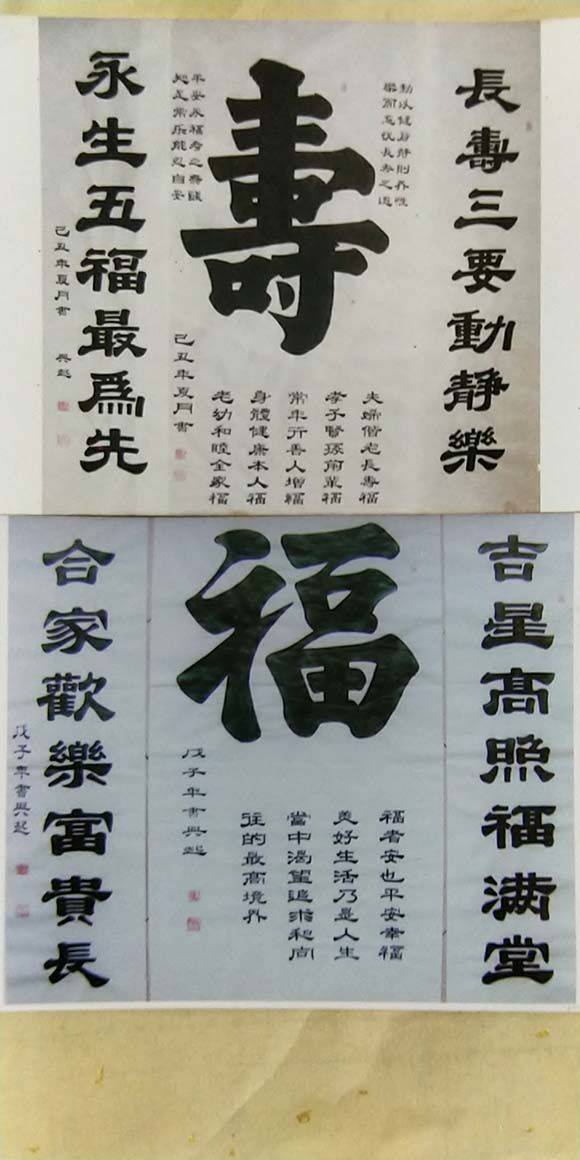 長壽三要動靜樂
動以健身靜則养性
樂而忘忧長寿之道
壽
平安永福寿之
知足常乐能忍自安
夫婦偕老長壽福
孝子賢孫業福
常年行善人增福
身體健康本人福
老幼和睦全家福
己丑年夏月書
永生五福最爲先
己丑年夏月書 兴起
吉星高照福满堂
福
福者安也平安幸福
美好生活乃是人生
當中渴望追求和向
往的最高境界
戊子年書興起
合家歡樂富貴長
戊子年書興起